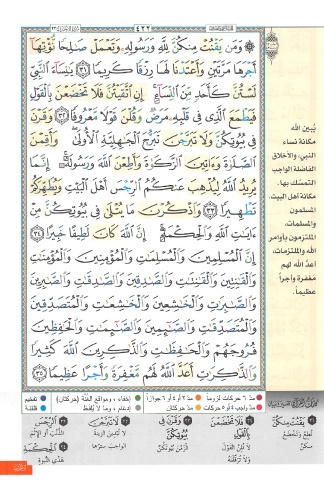 ٤٢٢
۞ وَمَن يَقْنُتْ مِنكُنَّ لِلَّهِ وَرَسُولِهِۦ وَتَعْمَلْ صَٰلِحًا نُّؤْتِهَآ
أَجْرَهَا مَرَّتَيْنِ وَأَعْتَدْنَا لَهَا رِزْقًا كَرِيمًا ٣١ يَٰنِسَآءَ ٱلنَّبِىِّ
لَسْتُنَّ كَأَحَدٍ مِّنَ ٱلنِّسَآءِ ۚ إِنِ ٱتَّقَيْتُنَّ فَلَا تَخْضَعْنَ بِٱلْقَوْلِ
فَيَطْمَعَ ٱلَّذِى فِى قَلْبِهِۦ مَرَضٌ وَقُلْنَ قَوْلًا مَّعْرُوفًا ٣٢ وَقَرْنَ
فِى بُيُوتِكُنَّ وَلَا تَبَرَّجْنَ تَبَرُّجَ ٱلْجَٰهِلِيَّةِ ٱلْأُولَىٰ ۖ وَأَقِمْنَ
ٱلصَّلَوٰةَ وَءَاتِينَ ٱلزَّكَوٰةَ وَأَطِعْنَ ٱللَّهَ وَرَسُولَهُۥٓ ۚ إِنَّمَا
يُرِيدُ ٱللَّهُ لِيُذْهِبَ عَنكُمُ ٱلرِّجْسَ أَهْلَ ٱلْبَيْتِ وَيُطَهِّرَكُمْ
تَطْهِيرًا ٣٣ وَٱذْكُرْنَ مَا يُتْلَىٰ فِى بُيُوتِكُنَّ مِنْ
ءَايَٰتِ ٱللَّهِ وَٱلْحِكْمَةِ ۚ إِنَّ ٱللَّهَ كَانَ لَطِيفًا خَبِيرًا ٣٤
إِنَّ ٱلْمُسْلِمِينَ وَٱلْمُسْلِمَٰتِ وَٱلْمُؤْمِنِينَ وَٱلْمُؤْمِنَٰتِ
وَٱلْقَٰنِتِينَ وَٱلْقَٰنِتَٰتِ وَٱلصَّٰدِقِينَ وَٱلصَّٰدِقَٰتِ وَٱلصَّٰبِرِينَ
وَٱلصَّٰبِرَٰتِ وَٱلْخَٰشِعِينَ وَٱلْخَٰشِعَٰتِ وَٱلْمُتَصَدِّقِينَ
وَٱلْمُتَصَدِّقَٰتِ وَٱلصَّٰٓئِمِينَ وَٱلصَّٰٓئِمَٰتِ وَٱلْحَٰفِظِينَ
فُرُوجَهُمْ وَٱلْحَٰفِظَٰتِ وَٱلذَّٰكِرِينَ ٱللَّهَ كَثِيرًا
وَٱلذَّٰكِرَٰتِ أَعَدَّ ٱللَّهُ لَهُم مَّغْفِرَةً وَأَجْرًا عَظِيمًا ٣٥
يُبين الله
مكانة نساء
النبي، والأخلاق
الفاضلة الواجب
التمسك بها.
مكانة أهل البيت.
المسلمون
والمسلمات،
الملتزمون بأوامر
الله والملتزمات،
أعدّ الله لهم
مغفرة وأجراً
عظيماً.
مد ٦ حركات لزوماً
مد ٢ أو ٤ أو ٦ جوازاً
مد واجب ٤ أو ٥ حركات
مد حركتان
إخفاء، ومواقع الغُنَّة (حركتان)
إدغام، وما لا يُلفظ
تفخيم
قلقلة
يَقْنُتْ مِنكُنَّ
فَلَا تَخْضَعْنَ بِالْقَوْلِ
وَقَرْنَ فِي بُيُوتِكُنَّ
الْزَمْنَ بُيُوتَكُنَّ
لَا تَبَرَّجْنَ
الرِّجْسَ
الْحِكْمَةِ
هَدْيِ النُّبُوَّةِ